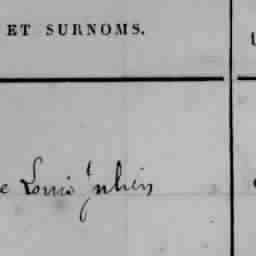 ET SURNOMS.
e Louis Julien